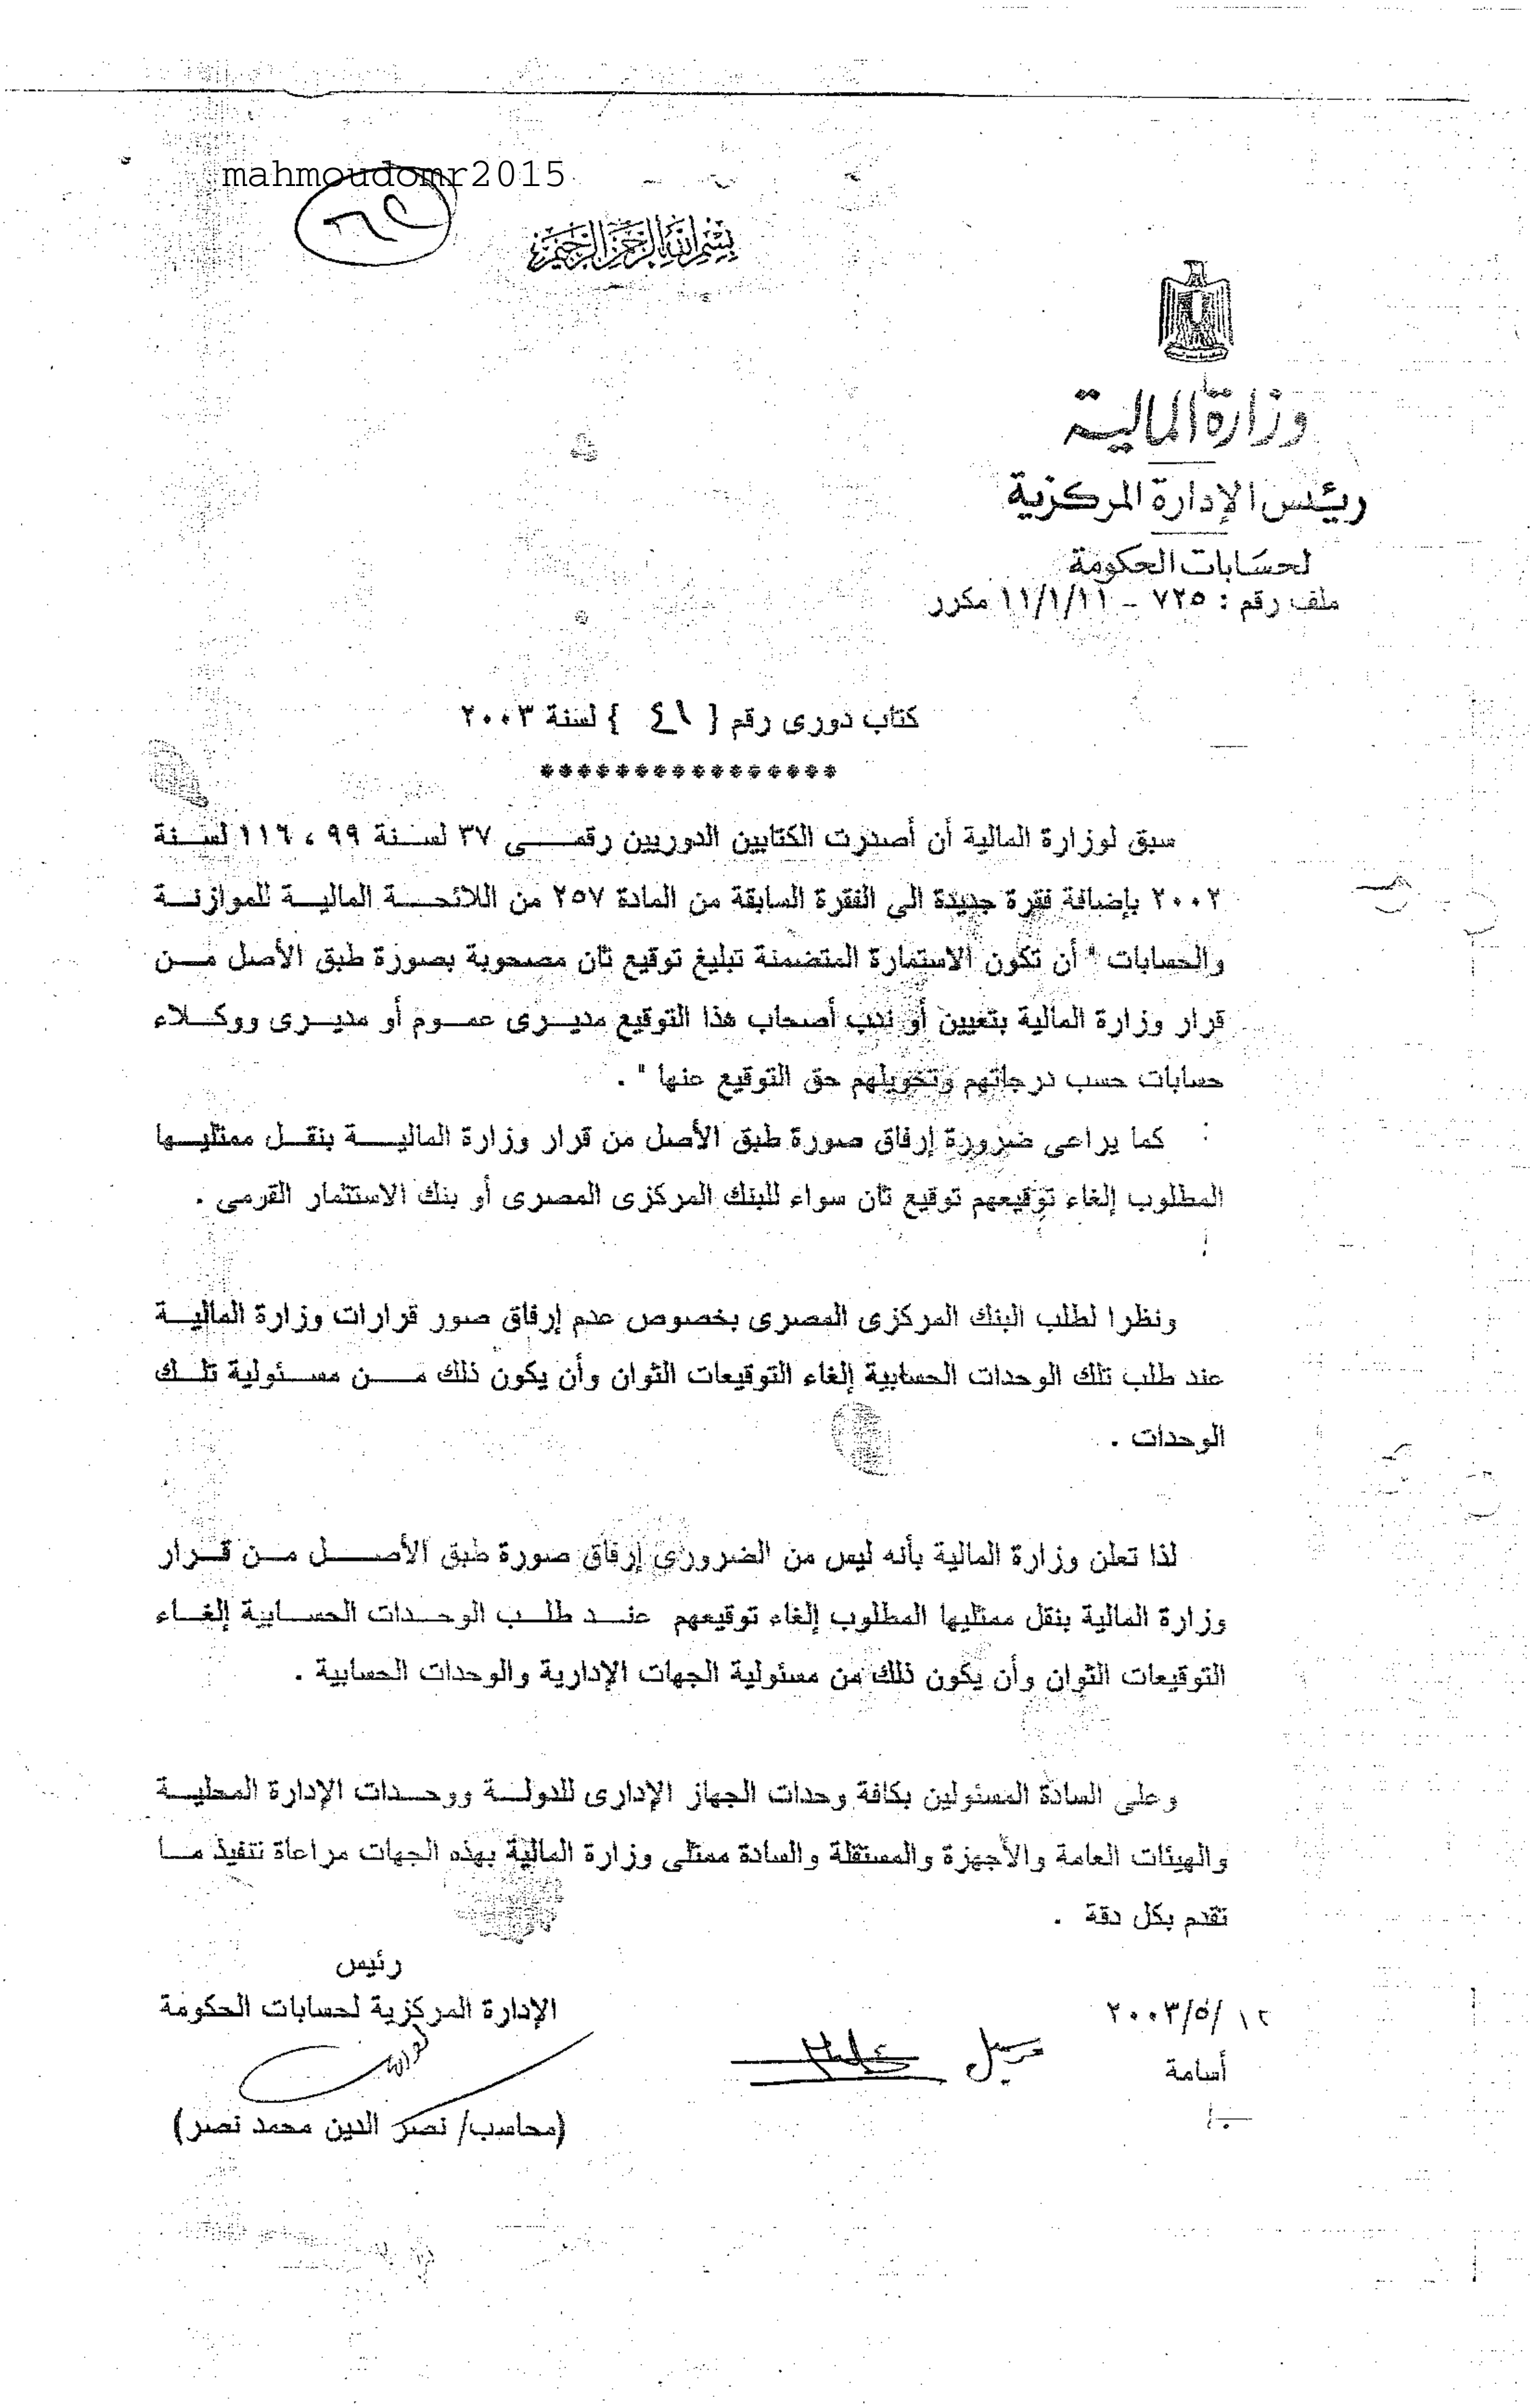 mahmoudomr2015
بسم الله الرحمن الرحيم
وزارة المالية
رئيس الإدارة المركزية
لحسابات الحكومة
ملف رقم : ٧٢٥ - ١١/١/١١ مكرر
كتاب دورى رقم { ٤١ } لسنة ٢٠٠٣
****************
سبق لوزارة المالية أن أصدرت الكتابين الدوريين رقمى ٣٧ لسنة ٩٩ ، ١١٦ لسنة
٢٠٠٢ بإضافة فقرة جديدة الى الفقرة السابقة من المادة ٢٥٧ من اللائحة المالية للموازنة
والحسابات " أن تكون الاستمارة المتضمنة تبليغ توقيع ثان مصحوبة بصورة طبق الأصل من
قرار وزارة المالية بتعيين أو ندب أصحاب هذا التوقيع مديرى عموم أو مديرى ووكلاء
حسابات حسب درجاتهم وتخويلهم حق التوقيع عنها " .
كما يراعى ضرورة إرفاق صورة طبق الأصل من قرار وزارة المالية بنقل ممثليها
المطلوب إلغاء توقيعهم توقيع ثان سواء للبنك المركزى المصرى أو بنك الاستثمار القرمى .
ونظرا لطلب البنك المركزى المصرى بخصوص عدم إرفاق صور قرارات وزارة المالية
عند طلب تلك الوحدات الحسابية إلغاء التوقيعات الثوان وأن يكون ذلك من مسئولية تلك
الوحدات .
لذا تعلن وزارة المالية بأنه ليس من الضرورى إرفاق صورة طبق الأصل من قرار
وزارة المالية بنقل ممثليها المطلوب إلغاء توقيعهم عند طلب الوحدات الحسابية إلغاء
التوقيعات الثوان وأن يكون ذلك من مسئولية الجهات الإدارية والوحدات الحسابية .
وعلى السادة المسئولين بكافة وحدات الجهاز الإدارى للدولة ووحدات الإدارة المحلية
والهيئات العامة والأجهزة والمستقلة والسادة ممثلى وزارة المالية بهذه الجهات مراعاة تنفيذ ما
تقدم بكل دقة .
رئيس
الإدارة المركزية لحسابات الحكومة
١٢ /٥/٢٠٠٣
أسامة
(محاسب/ نصر الدين محمد نصر)